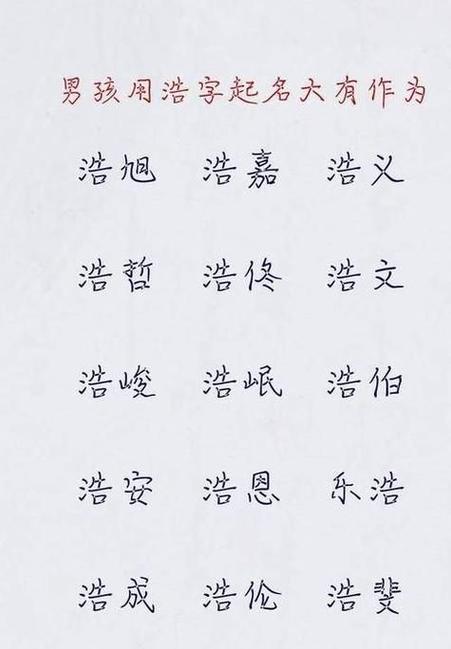 男孩用浩字起名大有作为
浩旭 浩嘉 浩义
浩哲 浩佟 浩文
浩峻 浩岷 浩伯
浩安 浩恩 乐浩
浩成 浩伦 浩斐